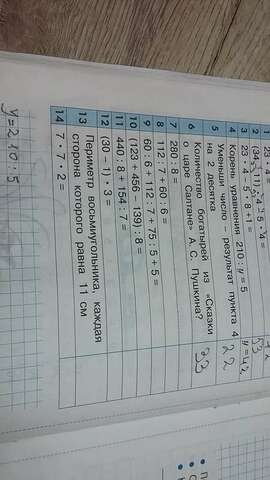 23 · 4
2 (34 + 111) : · 4 – 5 · 4 =
3 23 · 4 – 5 · 8 + 1 = 53
4 Корень уравнения 210 : y = 5 y = 42
5 Уменьши число – результат пункта 4
на 2 десятка 22
6 Количество богатырей из «Сказки
о царе Салтане» А. С. Пушкина? 33
7 280 : 8 =
8 112 : 7 + 60 : 6 =
9 60 : 6 + 112 : 7 + 75 : 5 + 5 =
10 (123 + 456 – 139) : 8 =
11 440 : 8 + 154 : 7 =
12 (30 – 1) · 3 =
13 Периметр восьмиугольника, каждая
сторона которого равна 11 см
14 7 · 7 · 2 =
y = 210 : 5